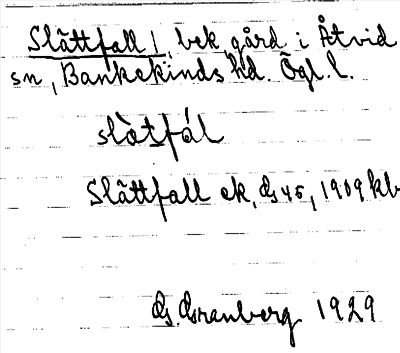 Slättfall 1, bek. gård i Åtvid
sn, Bankekinds hd. Ögl. l.
slàtfál
Slättfall ek, 1909 kb
Granberg 1929